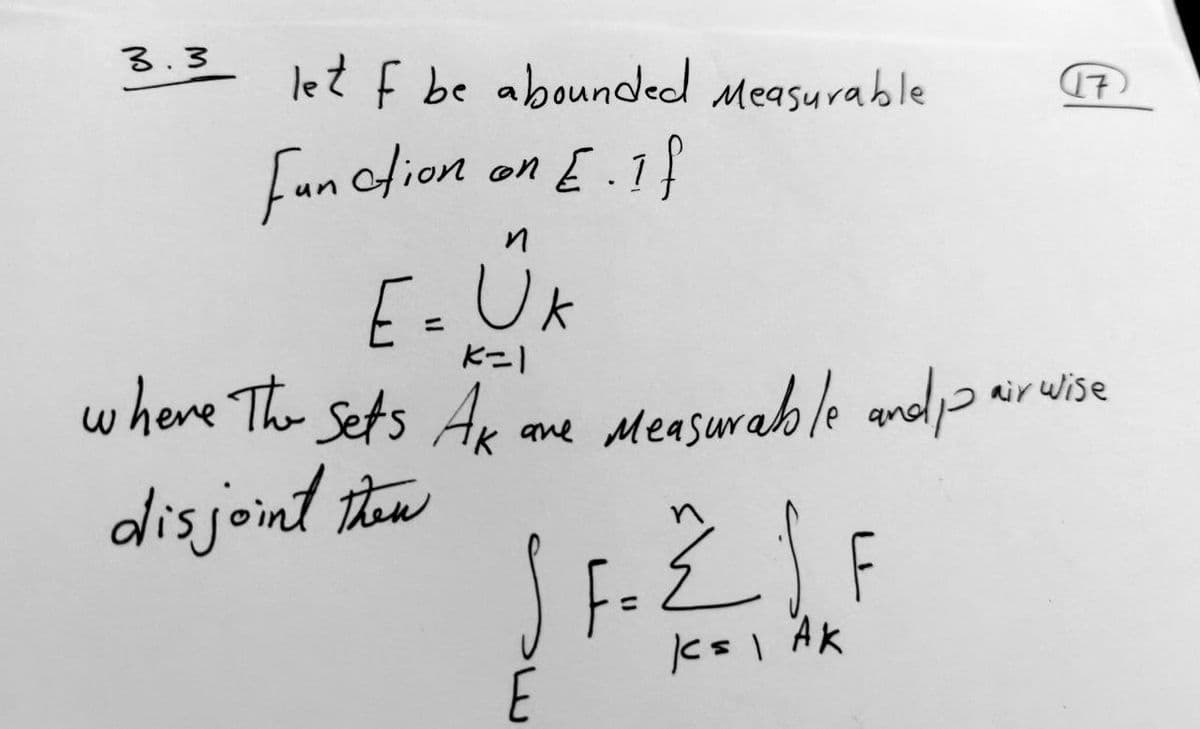 3.3 let f be abounded Measurable (17)
Function on E. If
n
E = U K
K=1
where The Sets AK are Measurable and pairwise
disjoint then
n
∫ F = Σ ∫ F
E K=1 AK